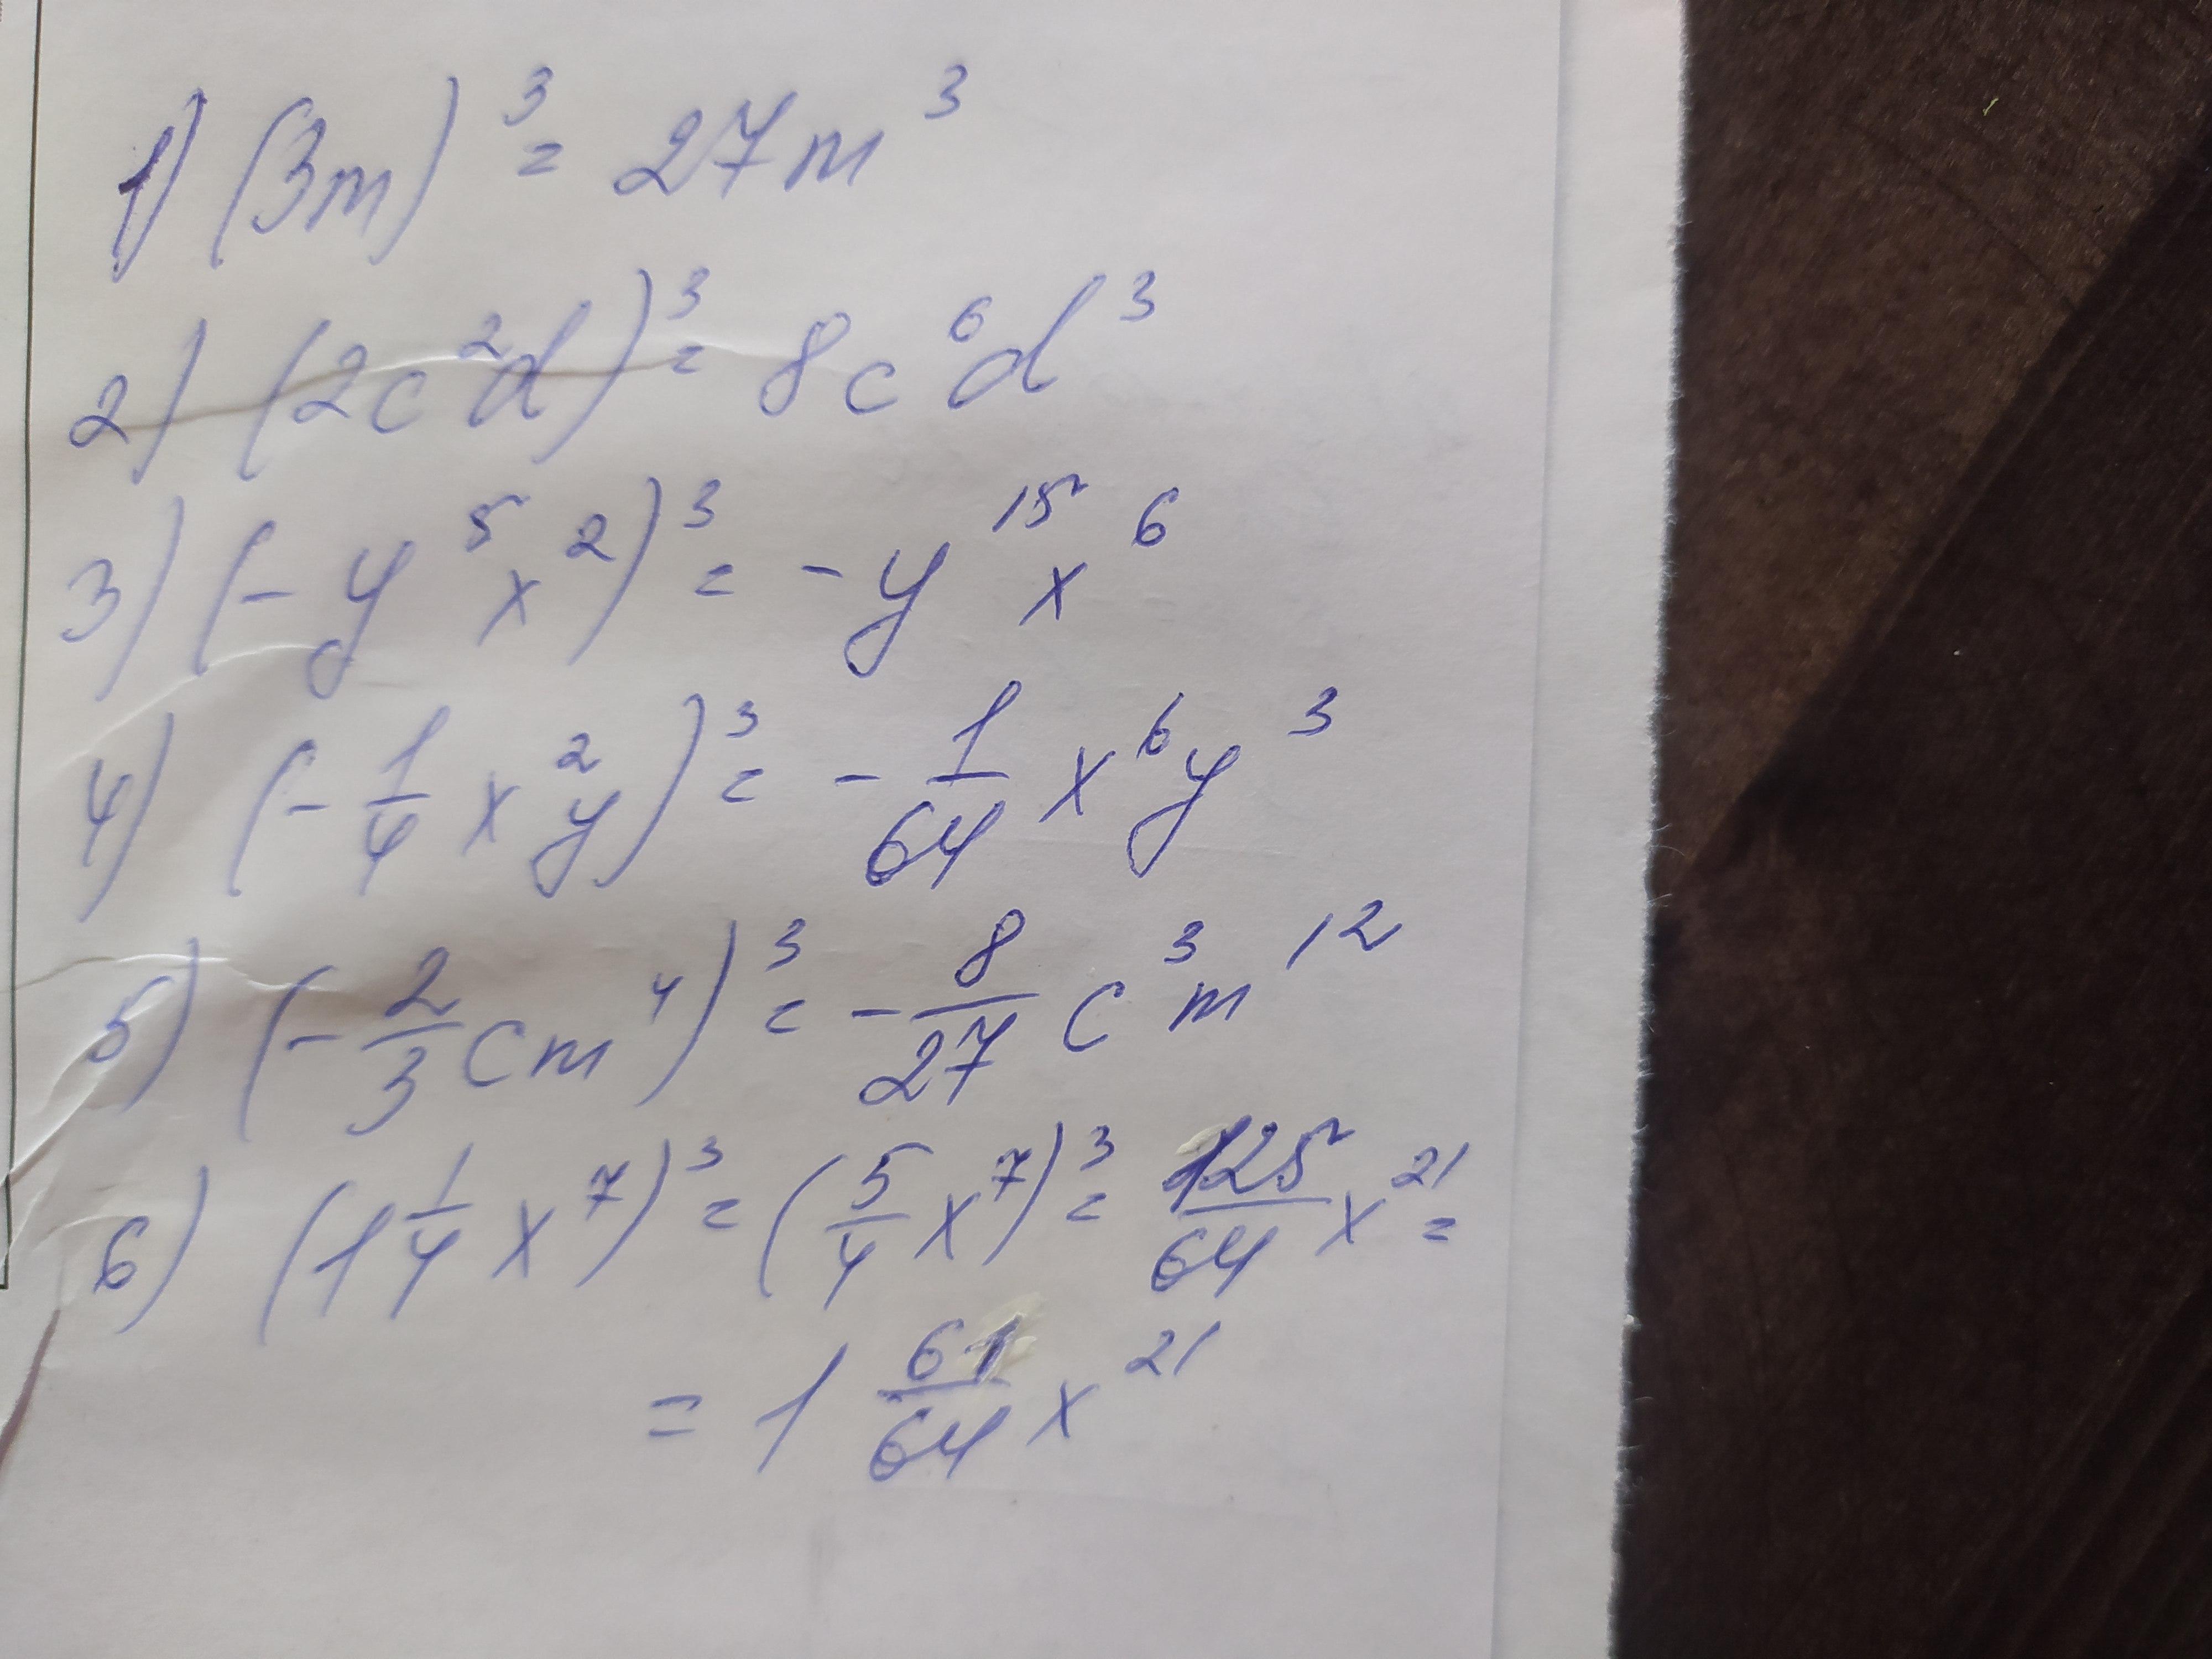 1) (3m)³ = 27m³
2) (2c²d)³ = 8c⁶d³
3) (-y⁵x²)³ = -y¹⁵x⁶
4) (-1/4 x²y)³ = -1/64 x⁶y³
5) (-2/3 cm⁴)³ = -8/27 c³m¹²
6) (1 1/4 x⁷)³ = (5/4 x⁷)³ = 125/64 x²¹ =
= 1 61/64 x²¹